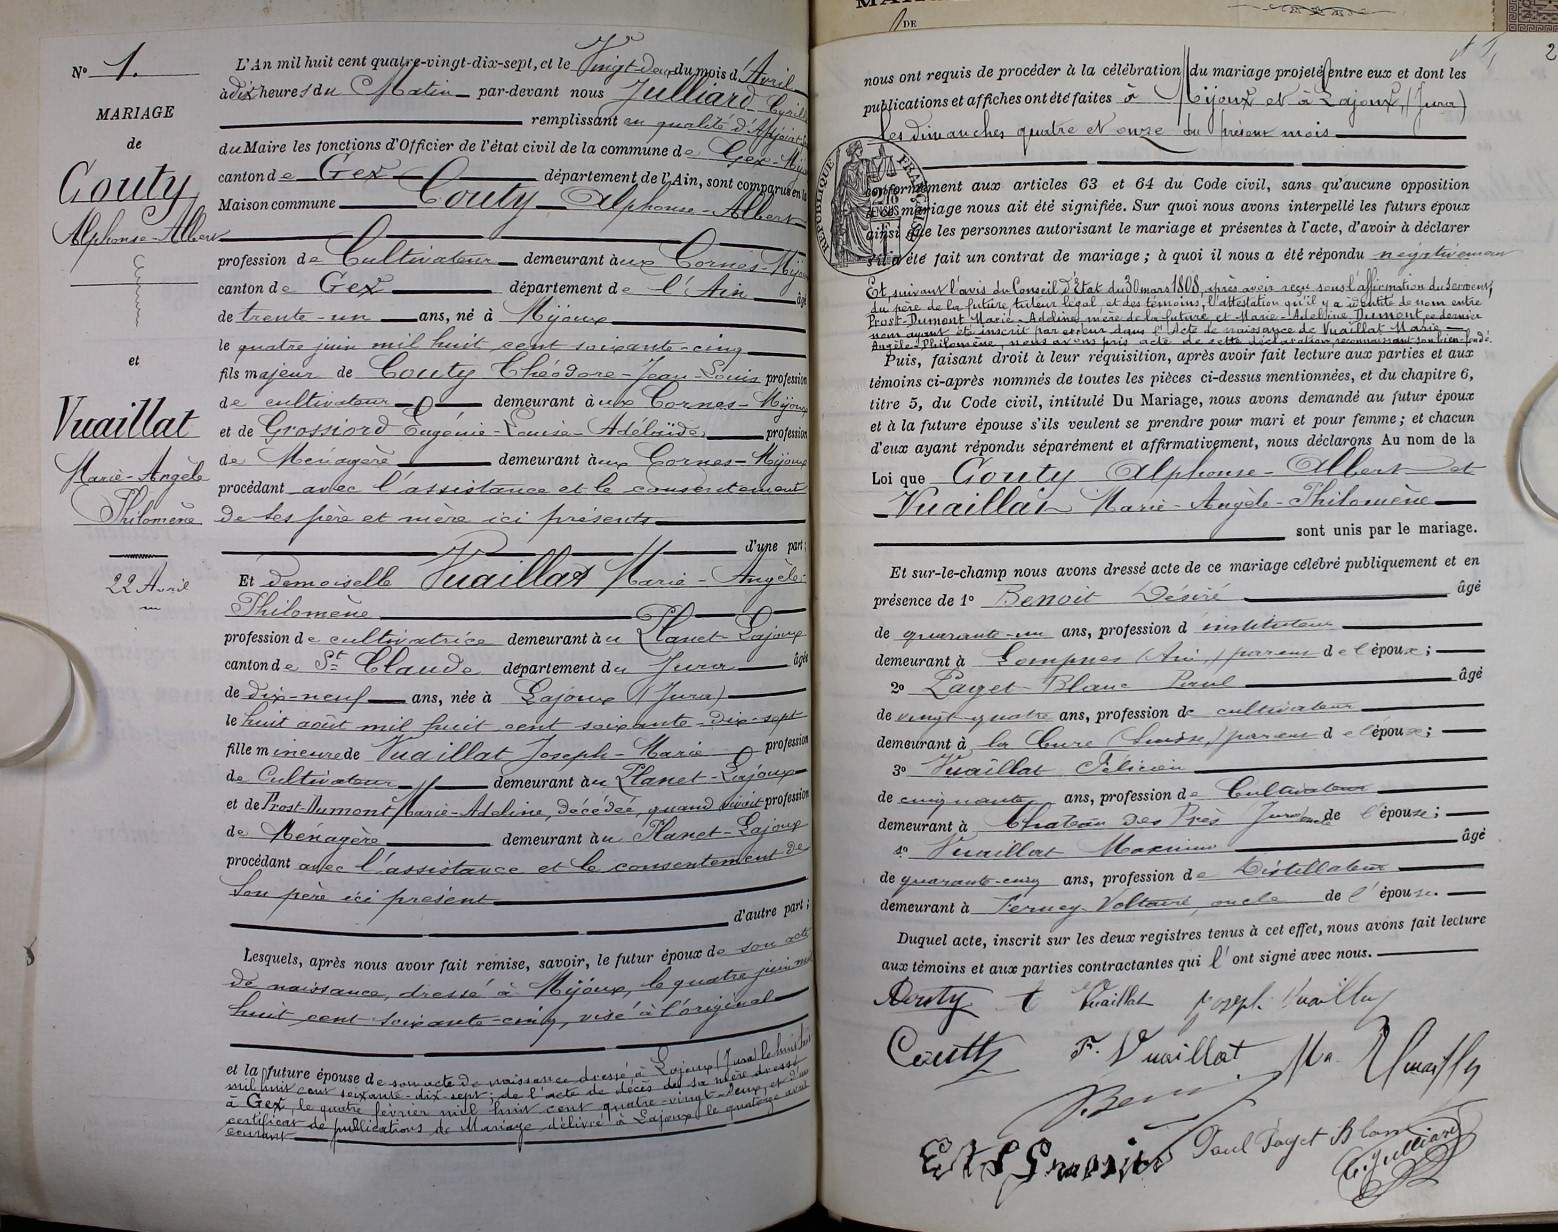 N° 1.
MARIAGE
de
Gouty
Alphonse-Albert
et
Vuaillat
Marie-Angèle
Philomène
22 Avril
L'An mil huit cent quatre-vingt-dix-sept, et le Vingt deux du mois d'Avril
à dix heures du Matin par-devant nous Julliard Cyrille
remplissant en qualité d'Adjoint
du Maire les fonctions d'Officier de l'état civil de la commune de Gex-Mijoux
canton de Gex département de l'Ain, sont comparus en la
Maison commune Gouty Alphonse-Albert
profession de Cultivateur demeurant aux Cornes-Mijoux
canton de Gex département de l'Ain âgé
de trente-un ans, né à Mijoux
le quatre juin mil huit cent soixante-cinq
fils majeur de Gouty Théodore-Jean-Louis profession
de cultivateur demeurant aux Cornes-Mijoux
et de Grossiord Eugénie-Louise-Adélaïde profession
de Ménagère demeurant aux Cornes-Mijoux
procédant avec l'assistance et le consentement
de ses père et mère ici présents
d'une part;
Et demoiselle Vuaillat Marie-Angèle-
Philomène
profession de cultivatrice demeurant au Planet-Lajoux
canton de St Claude département du Jura âgée
de dix-neuf ans, née à Lajoux (Jura)
le huit août mil huit cent soixante-dix-sept
fille mineure de Vuaillat Joseph-Marie profession
de Cultivateur demeurant au Planet-Lajoux
et de Prost-Dumont Marie-Adeline, décédée, quand vivait profession
de Ménagère demeurant au Planet-Lajoux
procédant avec l'assistance et le consentement de
son père ici présent
d'autre part;
Lesquels, après nous avoir fait remise, savoir, le futur époux de son acte
de naissance, dressé à Mijoux, le quatre juin mil
huit cent soixante-cinq, visé à l'original
et la future épouse de son acte de naissance dressé à Lajoux (Jura) le huit août
mil huit cent soixante-dix-sept; de l'acte de décès de sa mère dressé
à Gex, le quatre février mil huit cent quatre-vingt-deux, et d'un
certificat de publications de Mariage délivré à Lajoux le quatorze avril
courant
2
nous ont requis de procéder à la célébration du mariage projeté entre eux et dont les
publications et affiches ont été faites à Mijoux et à Lajoux, (Jura)
les dimanches quatre et onze du présent mois
RÉPUBLIQUE FRANÇAISE
conformément aux articles 63 et 64 du Code civil, sans qu'aucune opposition
au mariage nous ait été signifiée. Sur quoi nous avons interpellé les futurs époux
ainsi que les personnes autorisant le mariage et présentes à l'acte, d'avoir à déclarer
s'il a été fait un contrat de mariage; à quoi il nous a été répondu négativement
Et, suivant l'avis du Conseil d'État du 30 mars 1808, après avoir reçu sous l'affirmation du serment,
du père de la future, tuteur légal et des témoins, l'attestation qu'il y a identité de nom entre
Prost-Dumont Marie-Adeline, mère de la future, et Marie-Adeline Dumont, ce dernier
nom ayant été inscrit par erreur dans l'Acte de naissance de Vuaillat Marie-
Angèle-Philomène, nous avons pris acte de cette déclaration, reconnaissant son bien-fondé.
Puis, faisant droit à leur réquisition, après avoir fait lecture aux parties et aux
témoins ci-après nommés de toutes les pièces ci-dessus mentionnées, et du chapitre 6,
titre 5, du Code civil, intitulé Du Mariage, nous avons demandé au futur époux
et à la future épouse s'ils veulent se prendre pour mari et pour femme; et chacun
d'eux ayant répondu séparément et affirmativement, nous déclarons Au nom de la
Loi que Gouty Alphonse-Albert et
Vuaillat Marie-Angèle-Philomène
sont unis par le mariage.
Et sur-le-champ nous avons dressé acte de ce mariage célébré publiquement et en
présence de 1° Benoit Désiré âgé
de quarante-un ans, profession d'instituteur
demeurant à Lompnes (Ain), parent de l'époux;
2° Paget Blanc Paul âgé
de vingt-quatre ans, profession de cultivateur
demeurant à la Cure (Suisse) parent de l'époux;
3° Vuaillat Félicien
de cinquante ans, profession de Cultivateur
demeurant à Château des Prés Jura, oncle de l'épouse;
4° Vuaillat Maximin âgé
de quarante-cinq ans, profession de Distillateur
demeurant à Ferney-Voltaire, oncle de l'épouse.
Duquel acte, inscrit sur les deux registres tenus à cet effet, nous avons fait lecture
aux témoins et aux parties contractantes qui l'ont signé avec nous.
Gouty Vuaillat Joseph Vuaillat
Goutty F. Vuaillat Ma Vuaillat
Paul Paget Blanc
C. Julliard